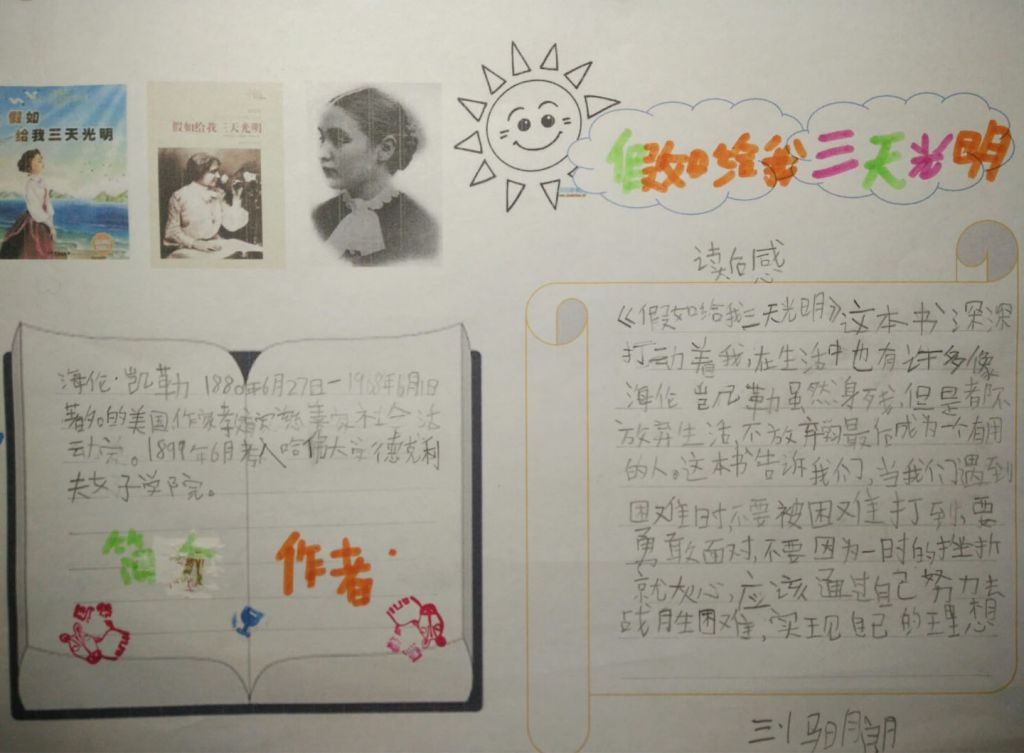 假如
给我三天光明
假如给我三天光明
假如给我三天光明
海伦·凯勒 1880年6月27日—1968年6月1日
著名的美国作家教育家慈善家社会活
动家。1899年6月考入哈佛大学德克利
夫女子学院。
简
作者
读后感
《假如给我三天光明》这本书深深
打动着我,在生活中也有许多像
海伦凯勒虽然身残,但是都不
放弃生活,不放弃到最后成为一个有用
的人。这本书告诉我们,当我们遇到
困难时,不要被困难打到,要
勇敢面对,不要因为一时的挫折
就灰心,应该通过自己努力去
战胜困难,实现自己的理想
三